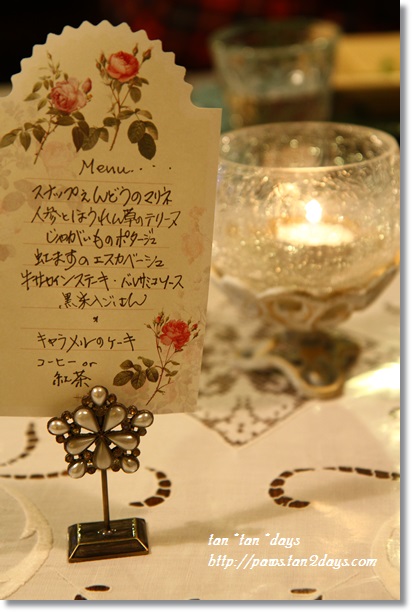 Menu....
スナップえんどうのマリネ
人参とほうれん草のテリーヌ
じゃがいものポタージュ
虹ますのエスカベーシュ
牛サーロインステキ・バルサミコソース
黒米入ごはん
キャラメルのケーキ
コーヒー or
紅茶
tan*tan*days
http://pams.tan2days.com